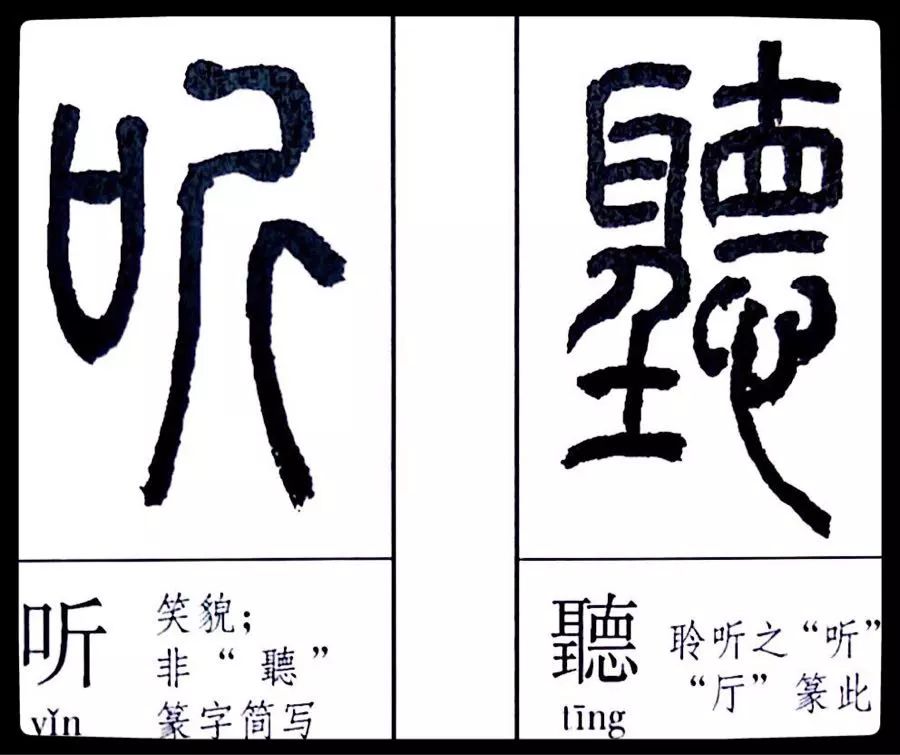 听
聽
听
yǐn
笑貌；
非“聽”
篆字简写
聽
tīng
聆听之“听”
“厅”篆此